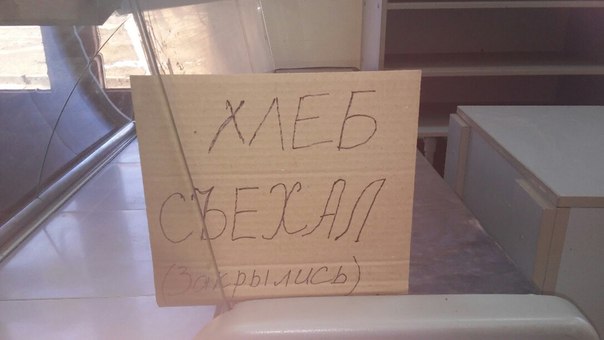 ХЛЕБ
СЪЕХАЛ
(Закрылись)